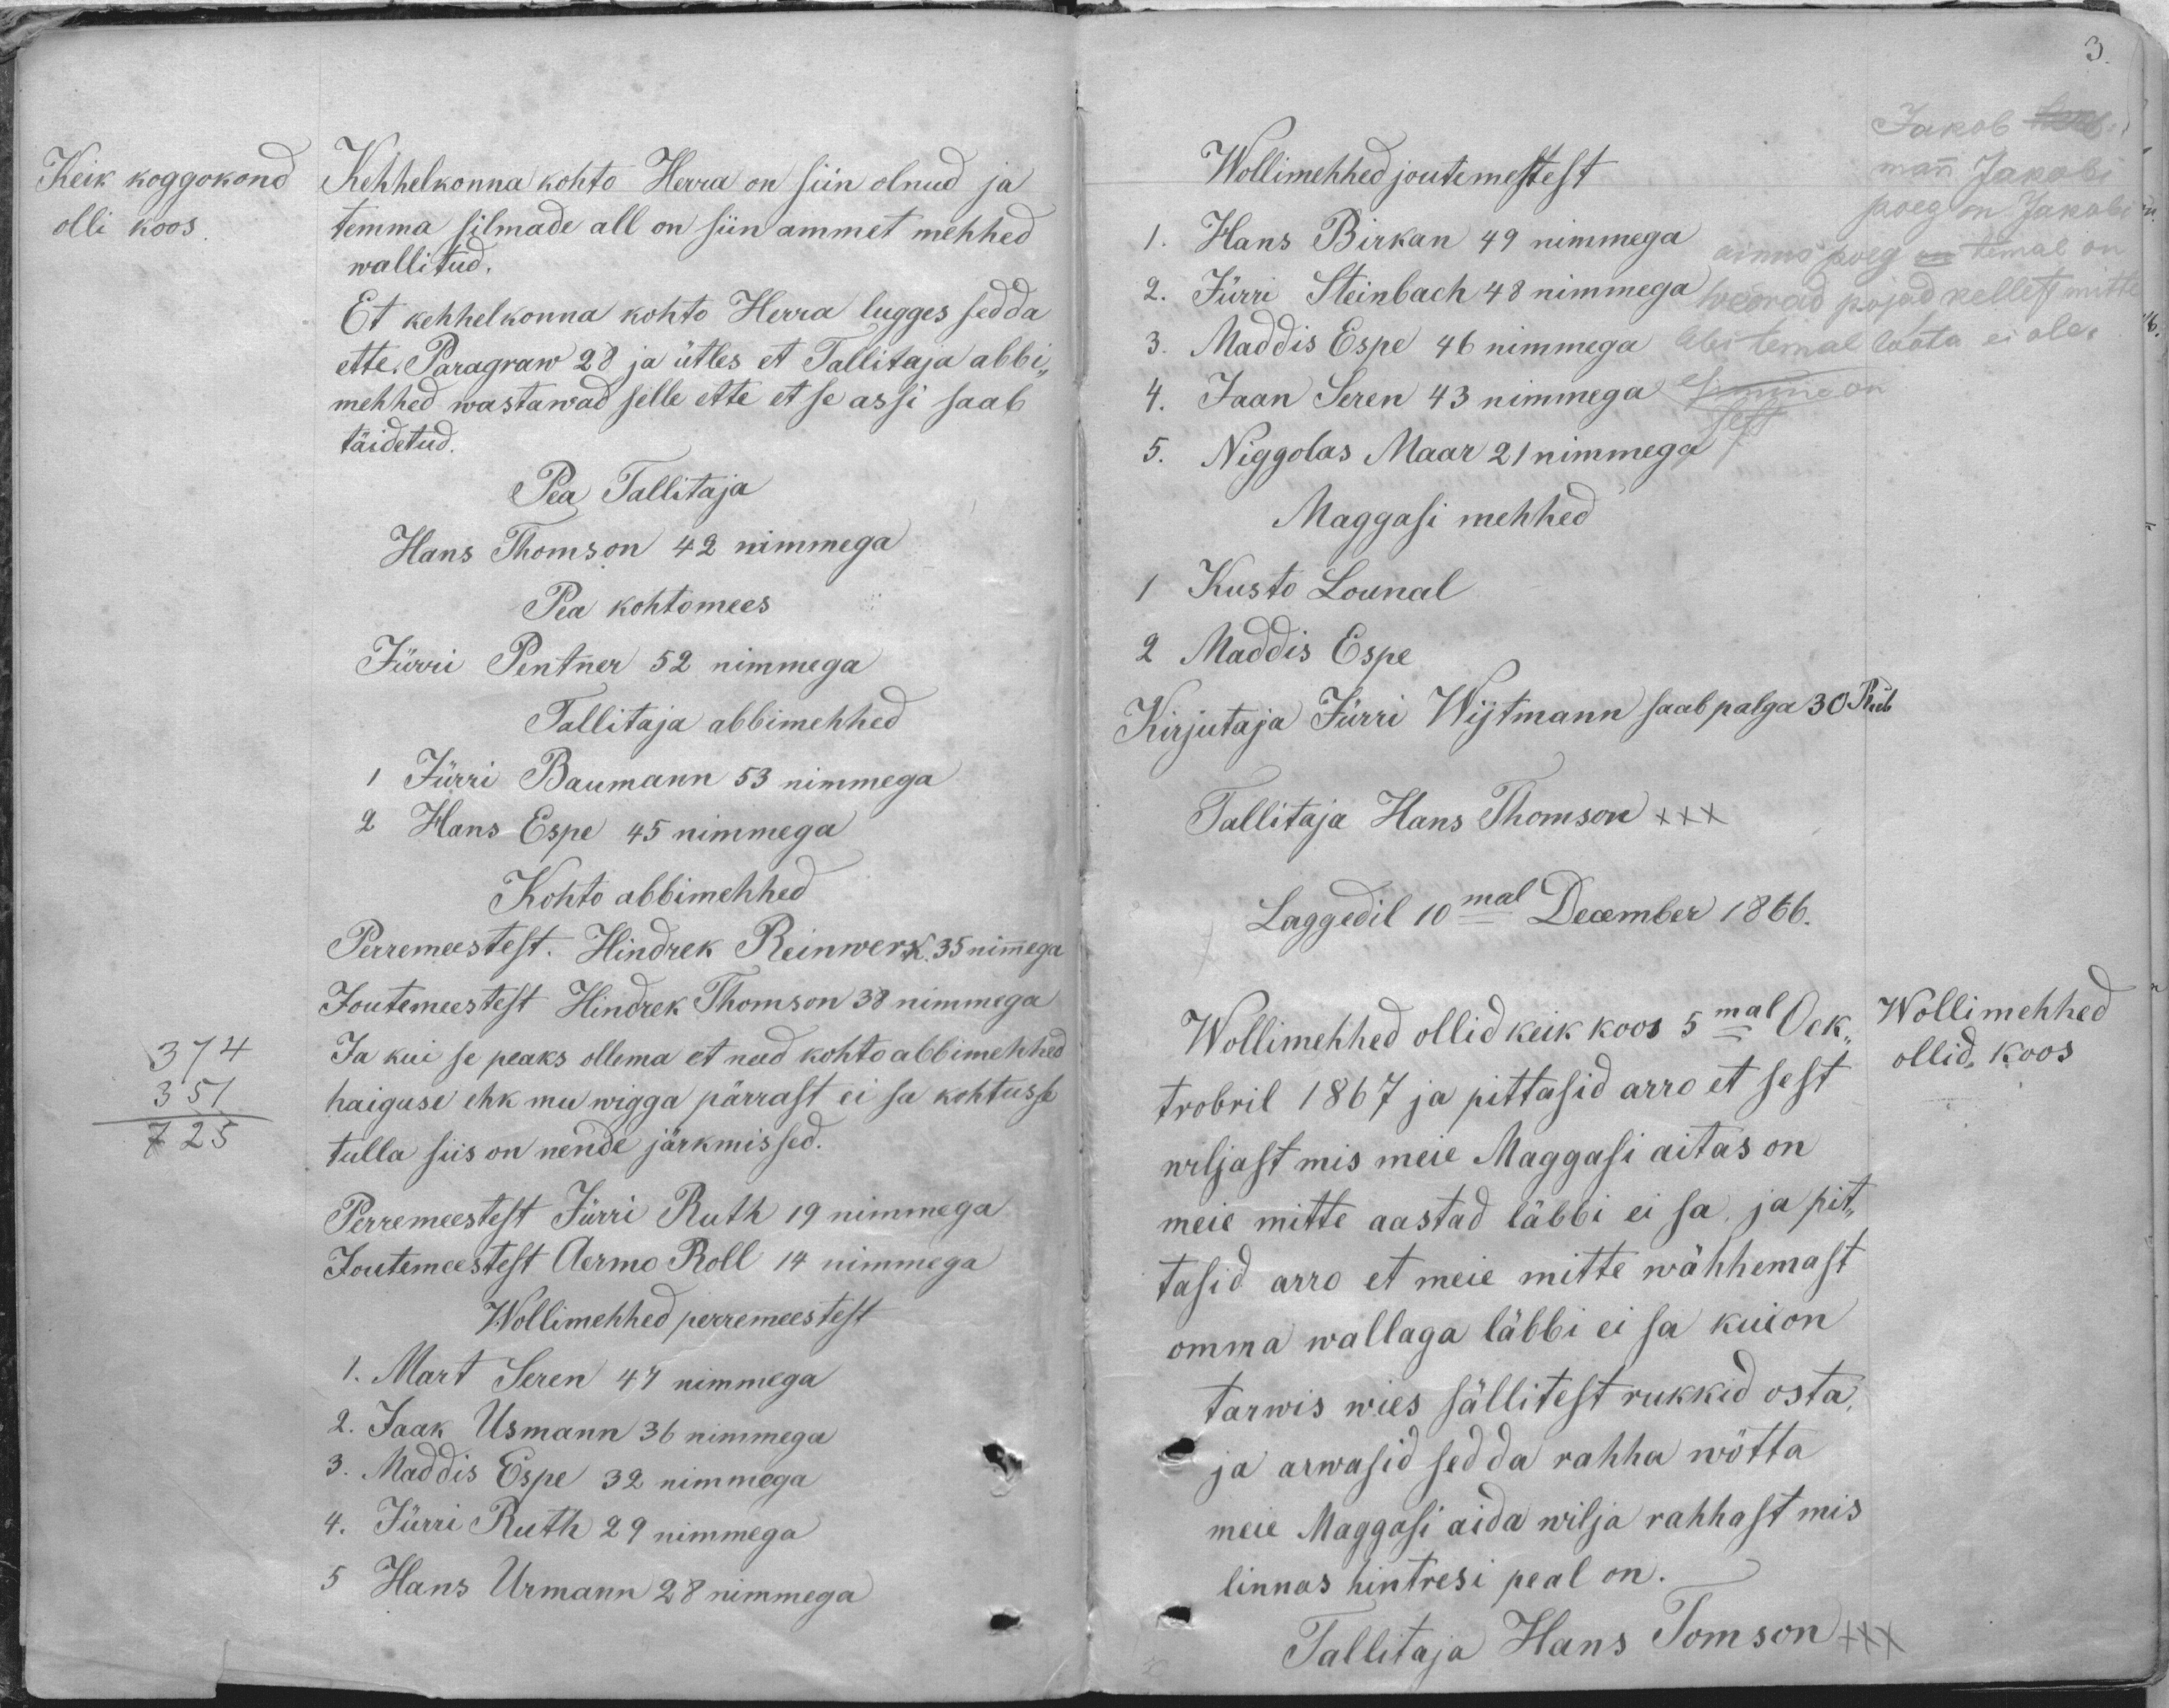 Keik koggokond
olli koos.
Kehhelkonna kohto Herra on siin olnud ja
temma silmade all on siin ammet mehhed
wallitud.
Et kehhelkonna kohto Herra lugges sedda
ette. Paragraw 28 ja ütles et Tallitaja abbi„
mehhed wastawad selle ette et se assi saab
täidetud.
Pea Tallitaja
Hans Thomson 42 nimmega
Pea kohtomees
Jürri Pentner 52 nimmega
Tallitaja abbimehhed
1 Jürri Baumann 53 nimmega
2 Hans Espe 45 nimmega
Kohto abbimehhed
Perremeestest. Hindrek Reinwerk. 35 nim̄ega
Joutemeestest Hindrek Thomson 38 nimmega
Ja kui se peaks ollema et need kohto abbimehhed
haiguse ehk mu wigga pärrast ei sa kohtusse
tulla siis on nende järkmissed.
374
351
725
Perremeestest Jürri Ruth 19 nimmega
Joutemeestest Aermo Roll 14 nimmega
Wollimehhed perremeestest
1. Mart Seren 47 nimmega
2. Jaak Usmann 36 nimmega
3. Maddis Espe 32 nimmega
4. Jürri Ruth 29 nimmega
5 Hans Urmann 28 nimmega
3.
Wollimehhed joutemestest
1. Hans Birkan 49 nimmega
2. Jürri Steinbach 48 nimmega
3. Maddis Espe 46 nimmega
4. Jaan Seren 43 nimmega
5. Niggolas Maar 21 nimmega
Jakob
man̄ Jakobi
poeg on Jakobi
ainus poeg on temal on
weorad pojad kellest mitte
abi temal loota ei ole.
on
sest
Maggasi mehhed
1 Kusto Lounal
2 Maddis Espe
Kirjutaja Jürri Wijtmann saab palga 30 Rub
Tallitaja Hans Thomson xxx
Laggedil 10mal December 1866.
Wollimehhed
ollid koos
Wollimehhed ollid keik koos 5mal Ock„
trobril 1867 ja pittasid arro et sest
wiljast mis meie Maggasi aitas on
meie mitte aastad läbbi ei sa, ja pit„
tasid arro et meie mitte wähhemast
omma wallaga läbbi ei sa kui on
tarwis wies sällitest rukkid osta,
ja arwasid sedda rahha wötta
meie Maggasi aida wilja rahhast mis
linnas hintresi peal on.
Tallitaja Hans Tomson xxx